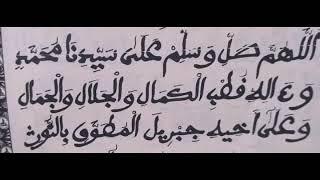 اَللَّهُمَّ صَلِّ وَسَلِّمْ عَلَى سَيِّدِنَا مُحَمَّدٍ
وَءَالِهِ قُطْبِ الْكَمَالِ وَالْجَلَالِ وَالْجَمَالِ
وَعَلَى أَخِيهِ جِبْرِيلَ الْمُطَوَّقِ بِالنُّورِ